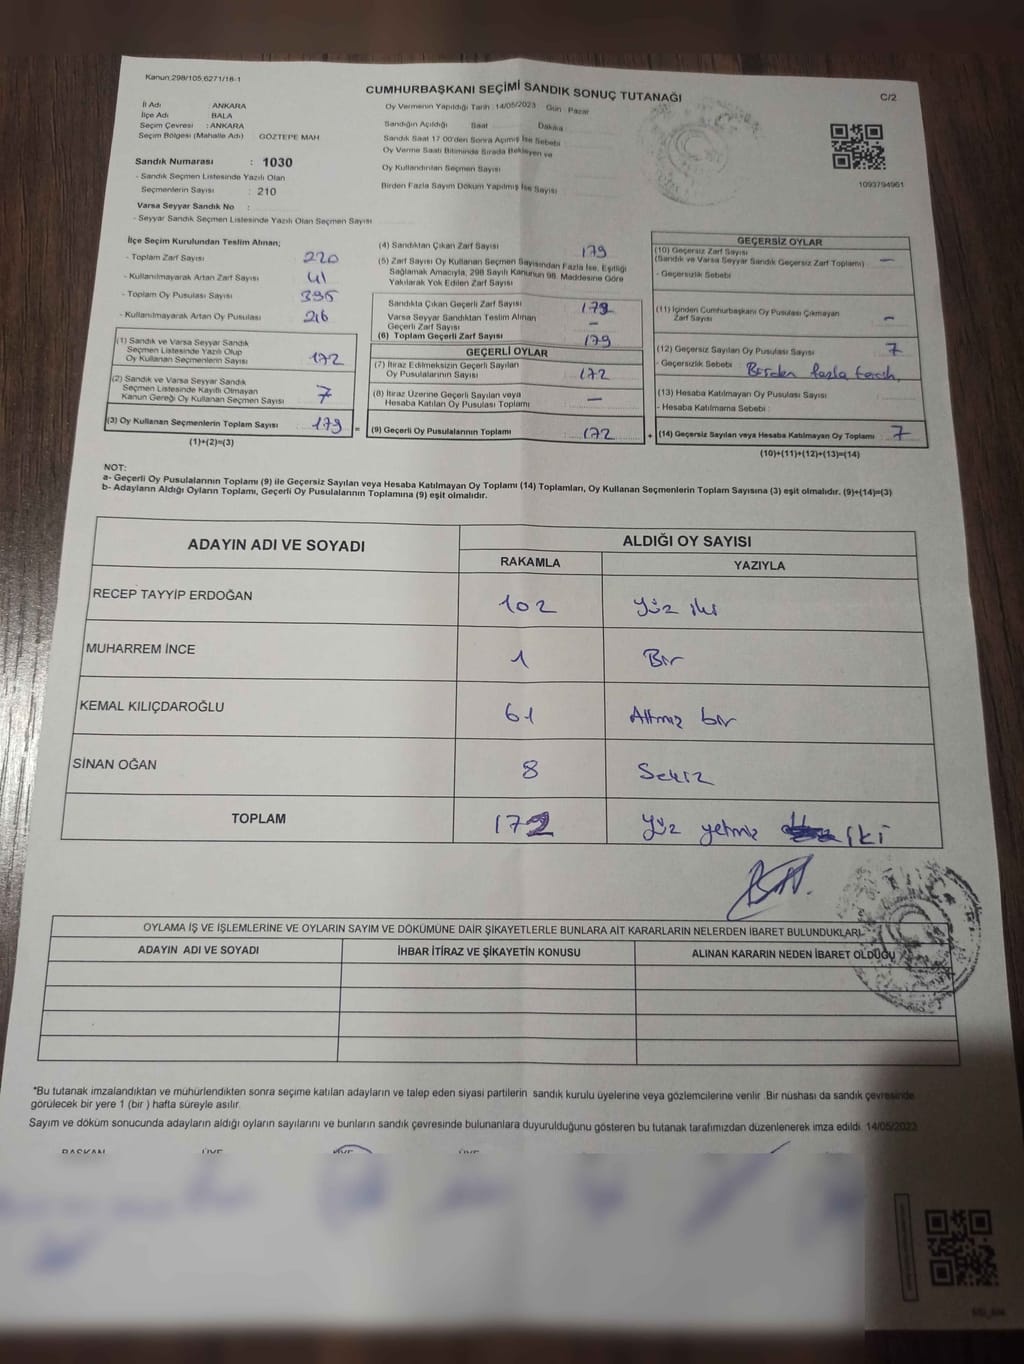 Kanun:298/105,6271/18-1
CUMHURBAŞKANI SEÇİMİ SANDIK SONUÇ TUTANAĞI
C/2
İl Adı ANKARA
İlçe Adı BALA
Seçim Çevresi : ANKARA
Seçim Bölgesi (Mahalle Adı) GÖZTEPE MAH
Sandık Numarası : 1030
- Sandık Seçmen Listesinde Yazılı Olan
Seçmenlerin Sayısı : 210
Varsa Seyyar Sandık No :
- Seyyar Sandık Seçmen Listesinde Yazılı Olan Seçmen Sayısı
Oy Vermenin Yapıldığı Tarih :14/05/2023 Gün Pazar
Sandığın Açıldığı Saat Dakika
Sandık Saat 17.00'den Sonra Açımış İse Sebebi
Oy Verme Saati Bitiminde Sırada Bekleyen ve
Oy Kullandırılan Seçmen Sayısı
Birden Fazla Sayım Döküm Yapılmış İse Sayısı
1093794961
İlçe Seçim Kurulundan Teslim Alınan;
- Toplam Zarf Sayısı 220
- Kullanılmayarak Artan Zarf Sayısı 41
- Toplam Oy Pusulası Sayısı
- Kullanılmayarak Artan Oy Pusulası 216
(1) Sandık ve Varsa Seyyar Sandık
Seçmen Listesinde Yazılı Olup
Oy Kullanan Seçmenlerin Sayısı 172
(2) Sandık ve Varsa Seyyar Sandık
Seçmen Listesinde Kayıtlı Olmayan
Kanun Gereği Oy Kullanan Seçmen Sayısı 7
(3) Oy Kullanan Seçmenlerin Toplam Sayısı 179 =
(1)+(2)=(3)
(4) Sandıktan Çıkan Zarf Sayısı 179
(5) Zarf Sayısı Oy Kullanan Seçmen Sayısından Fazla İse, Eşitliği
Sağlamak Amacıyla, 298 Sayılı Kanunun 98. Maddesine Göre
Yakılarak Yok Edilen Zarf Sayısı
Sandıkta Çıkan Geçerli Zarf Sayısı 179
Varsa Seyyar Sandıktan Teslim Alınan
Geçerli Zarf Sayısı –
(6) Toplam Geçerli Zarf Sayısı 179
GEÇERLİ OYLAR
(7) İtiraz Edilmeksizin Geçerli Sayılan
Oy Pusulalarının Sayısı 172
(8) İtiraz Üzerine Geçerli Sayılan veya
Hesaba Katılan Oy Pusulası Toplamı –
(9) Geçerli Oy Pusulalarının Toplamı 172 +
GEÇERSİZ OYLAR
(10) Geçersiz Zarf Sayısı
(Sandık ve Varsa Seyyar Sandık Geçersiz Zarf Toplamı) –
- Geçersizlik Sebebi
(11) İçinden Cumhurbaşkanı Oy Pusulası Çıkmayan
Zarf Sayısı –
(12) Geçersiz Sayılan Oy Pusulası Sayısı 7
- Geçersizlik Sebebi : Birden fazla tercih
(13) Hesaba Katılmayan Oy Pusulası Sayısı
- Hesaba Katılmama Sebebi :
(14) Geçersiz Sayılan veya Hesaba Katılmayan Oy Toplamı 7
(10)+(11)+(12)+(13)=(14)
NOT:
a- Geçerli Oy Pusulalarının Toplamı (9) ile Geçersiz Sayılan veya Hesaba Katılmayan Oy Toplamı (14) Toplamları, Oy Kullanan Seçmenlerin Toplam Sayısına (3) eşit olmalıdır. (9)+(14)=(3)
b- Adayların Aldığı Oyların Toplamı, Geçerli Oy Pusulalarının Toplamına (9) eşit olmalıdır.
ADAYIN ADI VE SOYADI ALDIĞI OY SAYISI
RAKAMLA YAZIYLA
RECEP TAYYİP ERDOĞAN 102 Yüz iki
MUHARREM İNCE 1 Bir
KEMAL KILIÇDAROĞLU 61 Altmış bir
SİNAN OĞAN 8 Sekiz
TOPLAM 172 Yüz yetmiş iki
OYLAMA İŞ VE İŞLEMLERİNE VE OYLARIN SAYIM VE DÖKÜMÜNE DAİR ŞİKAYETLERLE BUNLARA AİT KARARLARIN NELERDEN İBARET BULUNDUKLARI
ADAYIN ADI VE SOYADI İHBAR İTİRAZ VE ŞİKAYETİN KONUSU ALINAN KARARIN NEDEN İBARET OLDUĞU
*Bu tutanak imzalandıktan ve mühürlendikten sonra seçime katılan adayların ve talep eden siyasi partilerin sandık kurulu üyelerine veya gözlemcilerine verilir .Bir nüshası da sandık çevresinde
görülecek bir yere 1 (bir ) hafta süreyle asılır.
Sayım ve döküm sonucunda adayların aldığı oyların sayılarını ve bunların sandık çevresinde bulunanlara duyurulduğunu gösteren bu tutanak tarafımızdan düzenlenerek imza edildi. 14/05/2023
BAŞKAN ÜYE ÜYE ÜYE